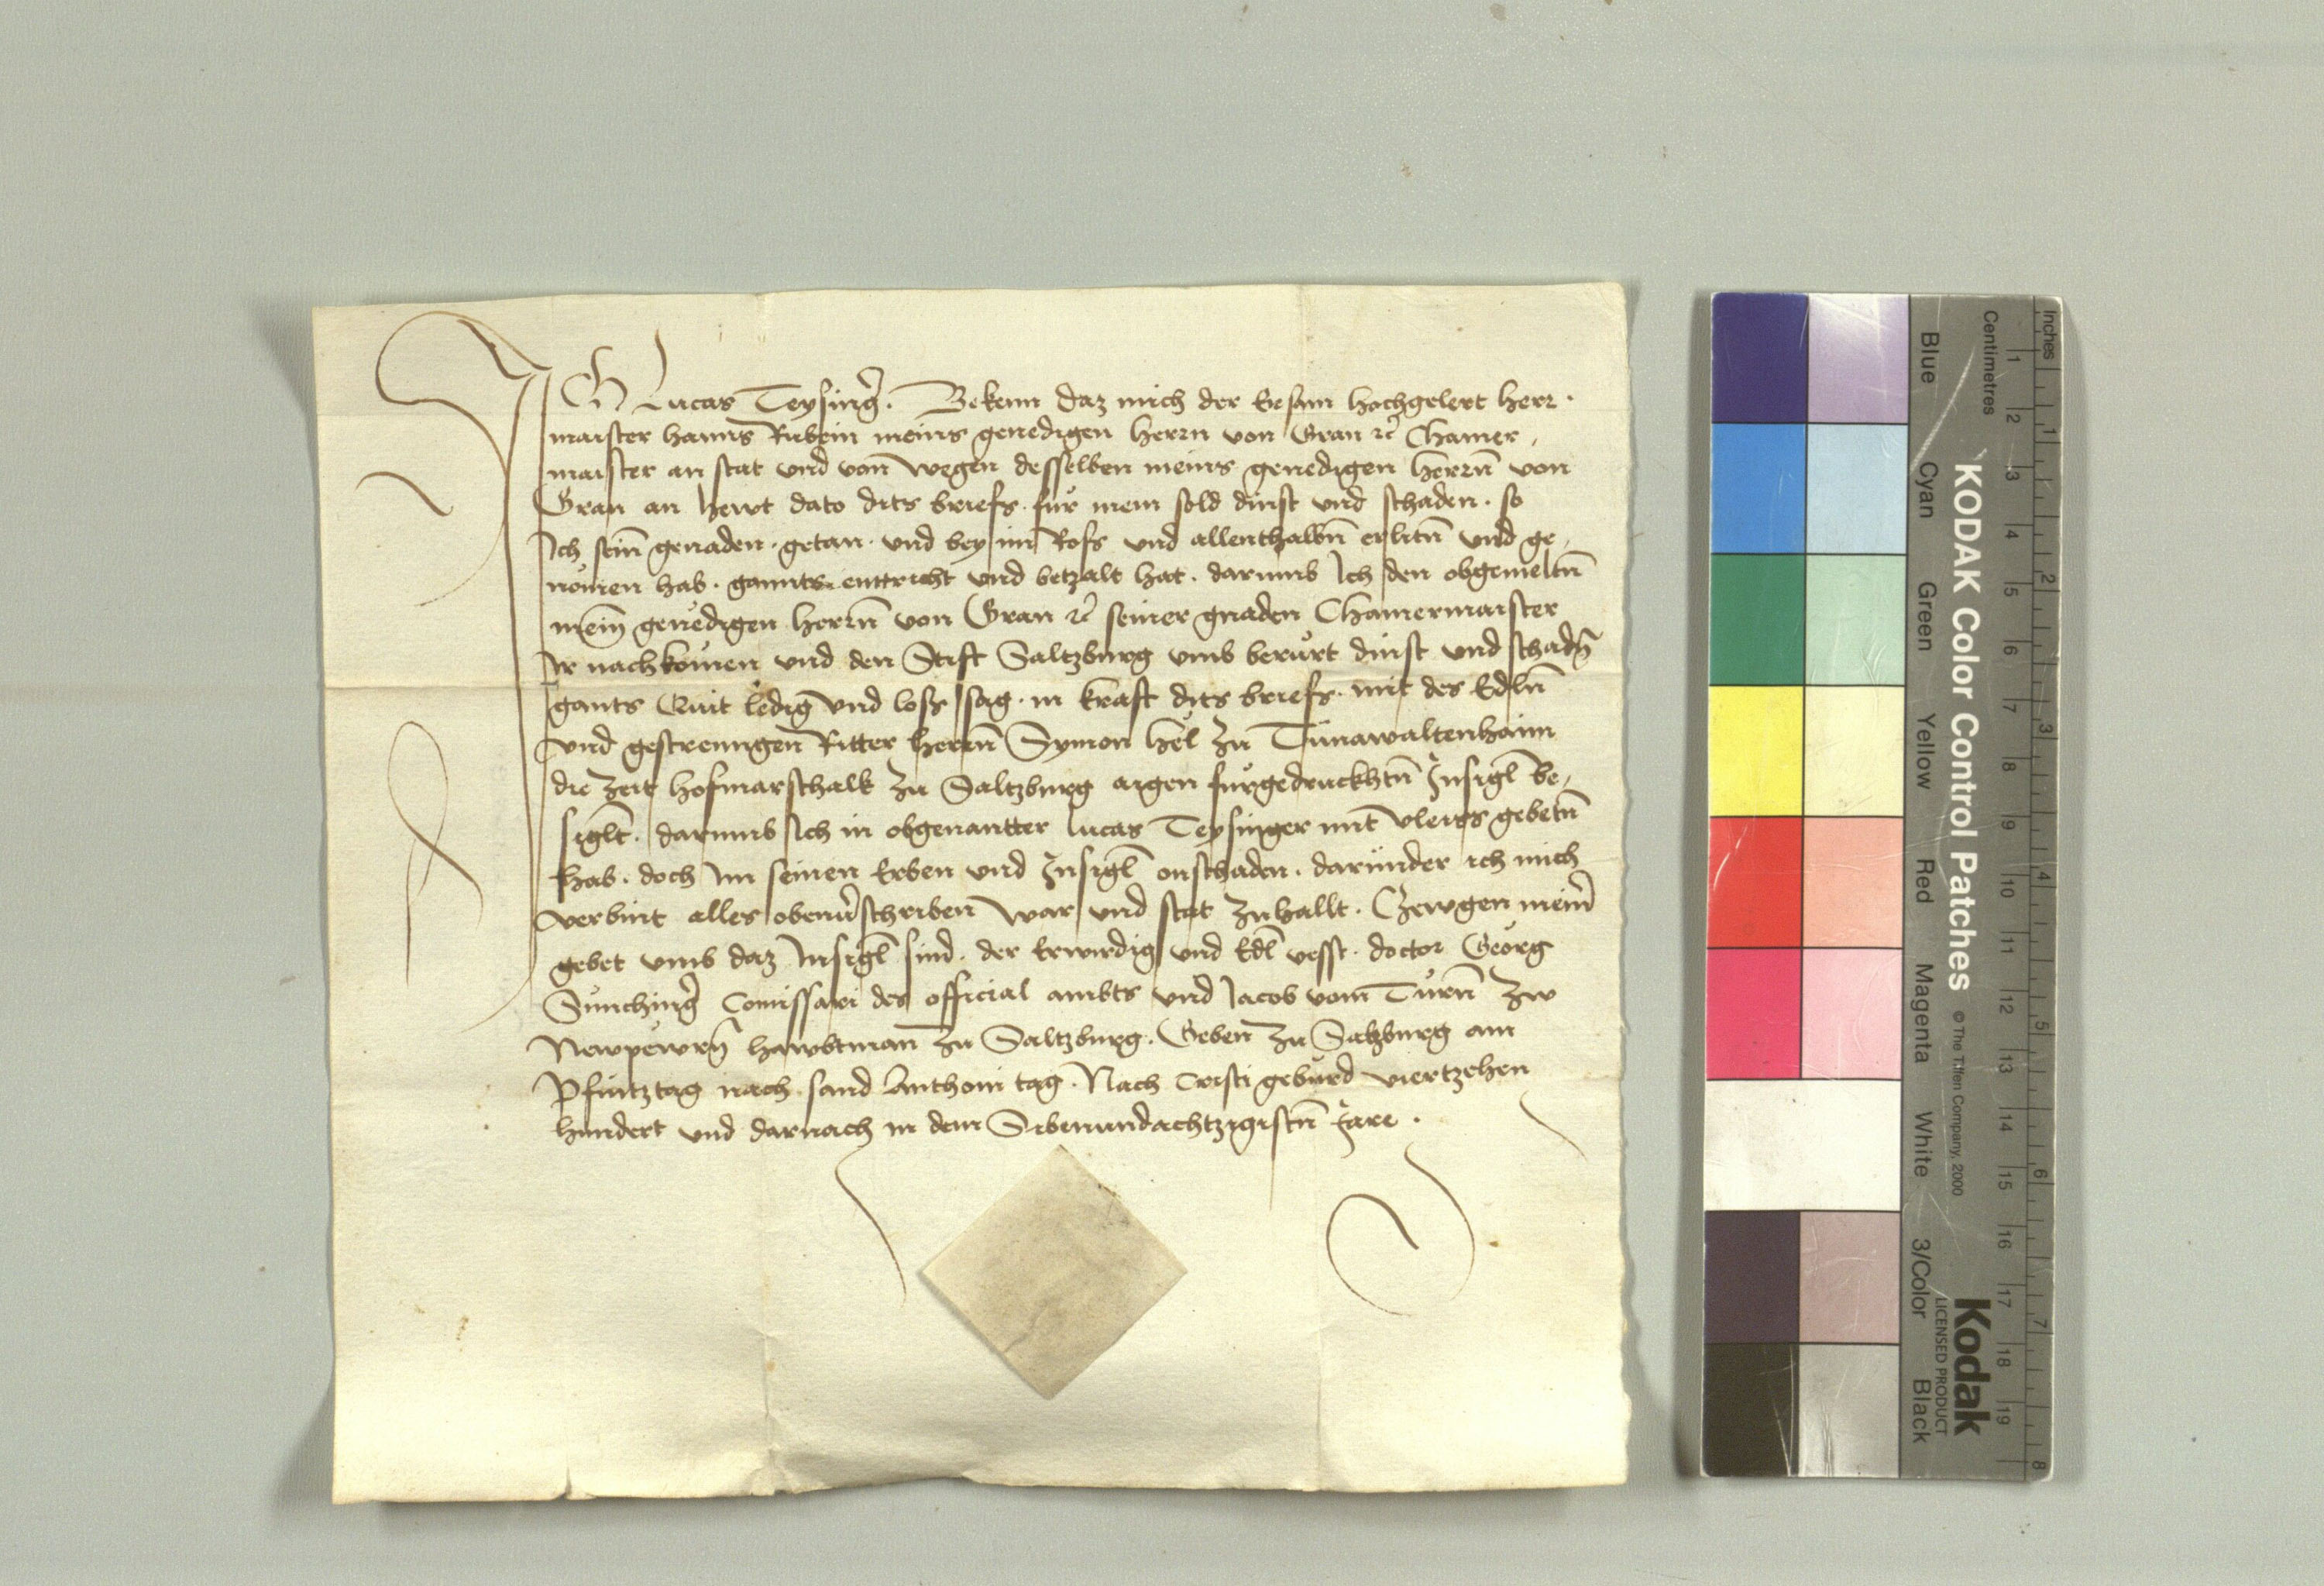 ICH Lucas Teysing̃. Bekenn daz mich der Ersam hochgelert herr.
maister hanns Rubein meins genedigen herrn von Gran ꝛc̃ Chamer,
maister an stat vnd von wegen desselben meins genedigen herrn̄ von
Gran an hewt dato dits briefs. für mein sold dinst vnd schaden. so
Ich sein̄ genaden. getan. vnd bey im Ross vnd allenthalbn̄ erlitn̄ vnd ge,
nomen hab. gannts entricht vnd betzalt hat. darumb Ich den obgemeltn̄
mein̄ genedigen herrn̄ von Gran ꝛc̃ seiner gnaden Chamermaister
Ir nachkomen vnd den Stift Saltzburg vmb berürt dinst vnd schadn̄
gants Quit ledig vnd loss sag. in kraft dits briefs. mit des Edln̄
vnd gestrenngen Ritter herrn̄ Symon hel zu Tunawaltenhaim
die zeit hofmarschalk zu Saltzburg aigen fürgedruckhtn̄ Insigl̄ be,
siglt. darumb Ich in obgenantter lucas Teysinger mit vleiss gebetn̄
hab. doch Im seinen Erben vnd Insigl̄ onschaden. daründer ich mich
verbint alles obenv̄schriben war vnd stat zuhallt. Czewgen mein̄
gebet vmb daz Insigl̄ sind. der Erwirdig vnd Edl̄ vesst. doctor Georg
Sünching̃ Comissari des official ambts vnd Jacob vom Türn̄ zw
Newpewrn̄ hawbtman̄ zu Saltzburg. Geben zu Saltzburg am
Pfintztag nach sand Anthoni tag. Nach Cristi geburd viertzehen
hundert vnd darnach in dem Sibenundachtzigistn̄ Jare.
Inches 1 2 3 4 5 6 7 8
Centimetres 1 2 3 4 5 6 7 8 9 10 11 12 13 14 15 16 17 18 19
KODAK Color Control Patches © The Tiffen Company, 2000 Kodak
LICENSED PRODUCT
Blue Cyan Green Yellow Red Magenta White 3/Color Black